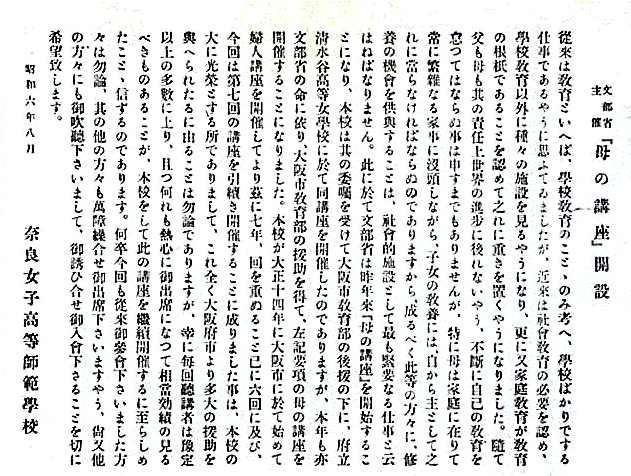 文部省主催『母の講座』開設
從來は教育といへば、學校教育のことゝのみ考へ、學校ばかりでする
仕事であるやうに思ふてゐましたが、近來は社會教育の必要を認め、
學校教育以外に種々の施設を見るやうになり、更に又家庭教育が教育
の根柢であることを認めて之れに重きを置くやうになりました。隨て
父も母も其の責任上世界の進步に後れないやう、不斷に自己の教育を
怠つてはならぬ事は申すまでもありませんが、特に母は家庭に在りて
常に繁雜なる家事に沒頭しながら、子女の教養には、自から主として之
れに當らなければならぬのでありますから、成るべく此等の方々に、修
養の機會を供與することは、社會的施設として最も緊要なる仕事と云
はねばなりません。此に於て文部省は昨年來『母の講座』を開始するこ
とになり、本校は其の委囑を受けて大阪市教育部の後援の下に、府立
清水谷高等女學校に於て同講座を開催したのでありますが、本年も亦
文部省の命に依り、大阪市教育部の援助を得て、左記要項の母の講座を
開催することになりました。本校が大正十四年に大阪市に於て始めて
婦人講座を開催してより茲に七年、回を重ぬること已に六回に及び、
今回は第七回の講座を引續き開催することに成りました事は、本校の
大に光榮とする所でありまして、これ全く大阪府市より多大の援助を
與へられたるに由ることは勿論でありますが、幸に毎回聽講者は豫定
以上の多數に上り、且つ何れも熱心に御出席になつて相當効績の見る
べきものあることが、本校をして此の講座を繼續開催するに至らしめ
たことゝ信ずるのであります。何卒今回も從來御參會下さいました方
々は勿論、其の他の方々も萬障繰合せ御出席下さいますやう、尙又他
の方々にも御吹聽下さいまして、御誘ひ合せ御入會下さることを切に
希望致します。
昭和六年八月
奈良女子高等師範學校